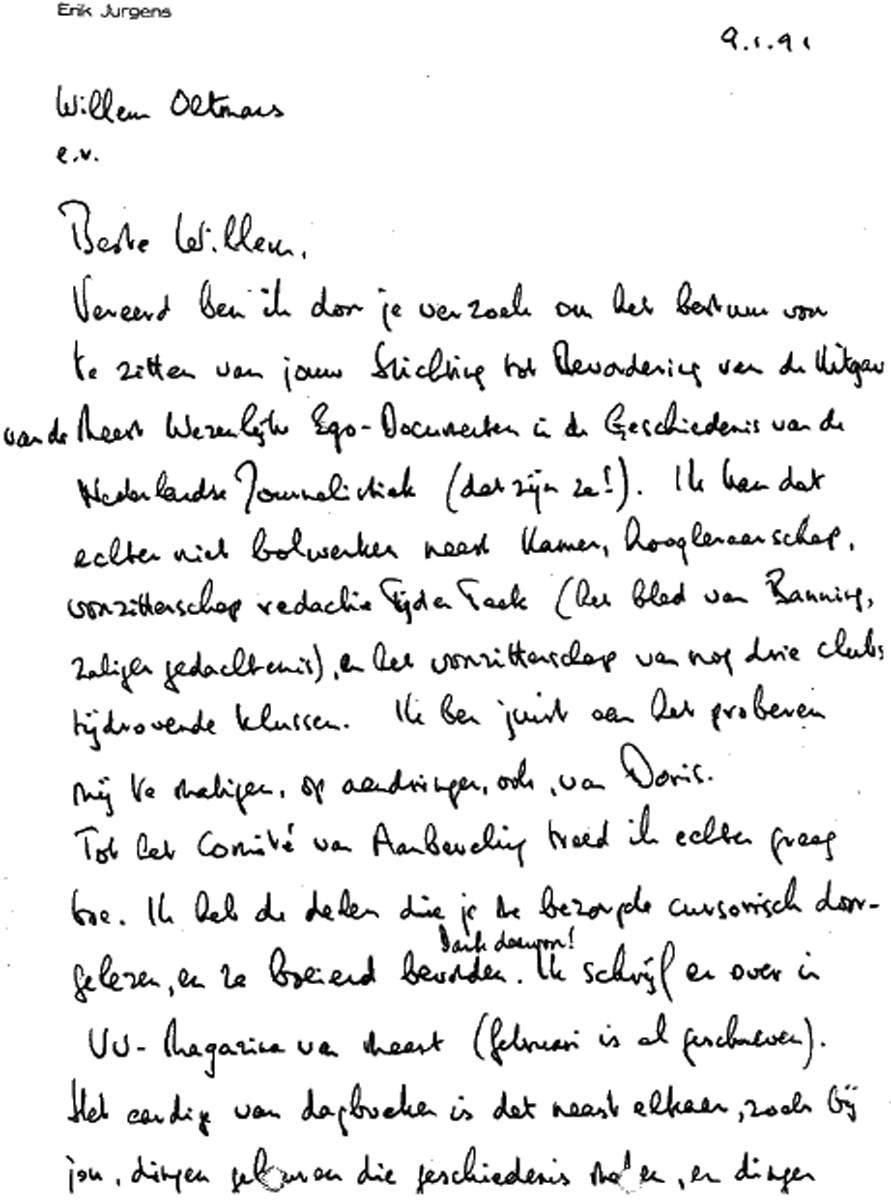 Erik Jurgens
9.1.91
Willem Oltmans
e.v.
Beste Willem,
Vereerd ben ik door je verzoek om het bestuur voor
te zitten van jouw Stichting tot Bevordering van de Uitgave
van de Meest Wezenlijke Ego-Documenten in de Geschiedenis van de
Nederlandse Journalistiek (dat zijn ze!). Ik kan dat
echter niet bolwerken naast Kamer, hoogleraarschap,
voorzitterschap redactie Tijd en Taak (het blad van Banning,
zaliger gedachtenis), en het voorzitterschap van nog drie clubs
tijdrovende klussen. Ik ben juist aan het proberen
mij te matigen, op aandringen, ook, van Doris.
Tot het Comité van Aanbeveling treed ik echter graag
toe. Ik heb de delen die je me bezorgde cursorisch door-
Dank daarvoor!
gelezen, en ze boeiend bevonden. Ik schrijf er over in
VU-Magazine van maart (februari is al geschreven).
Het aardige van dagboeken is dat naast elkaar, zoals bij
jou, dingen gebeuren die geschiedenis maken, en dingen